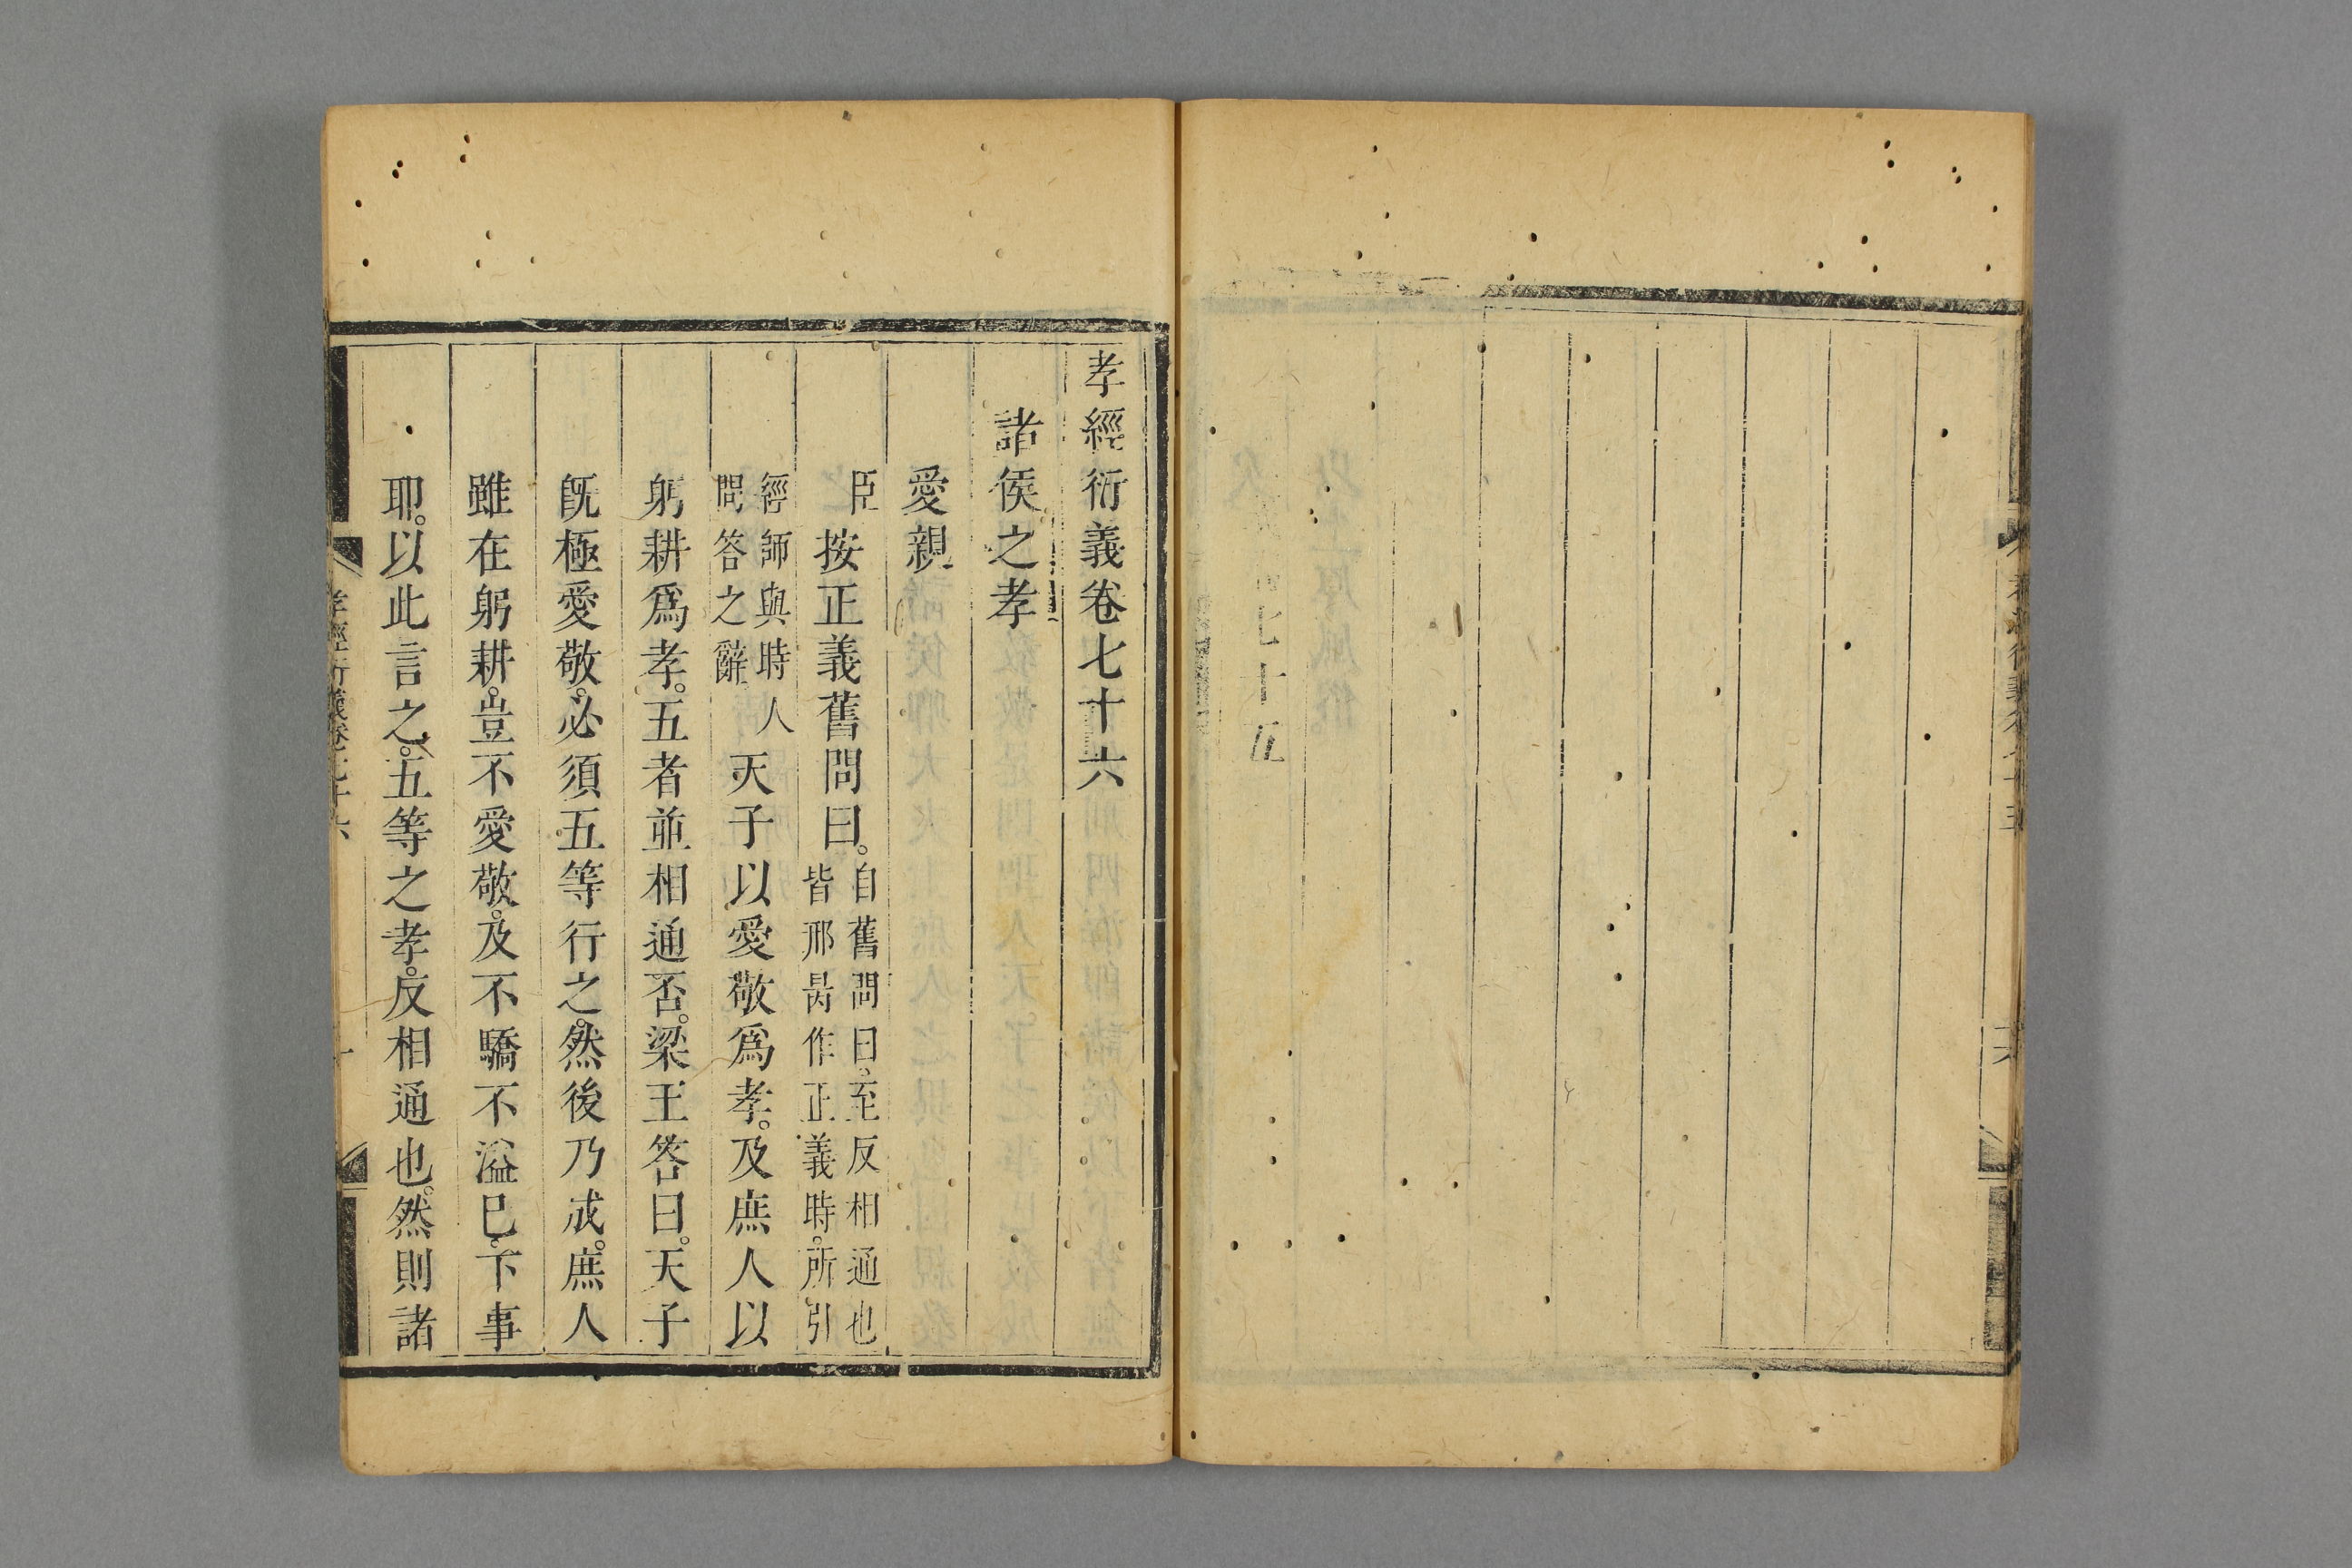 七十五
孝經衍義卷七十六
諸侯之孝
愛親
臣按正義舊問曰。自舊問曰。至反相通也
皆邢昺作正義時。所引
經師與時人
問答之辭
天子以愛敬爲孝。及庶人以
躬耕爲孝。五者並相通否。梁王答曰。天子
旣極愛敬。必須五等行之。然後乃成。庶人
雖在躬耕。豈不愛敬。及不驕不溢巳。下事
耶。以此言之。五等之孝。反相通也。然則諸
孝經衍義卷七十六